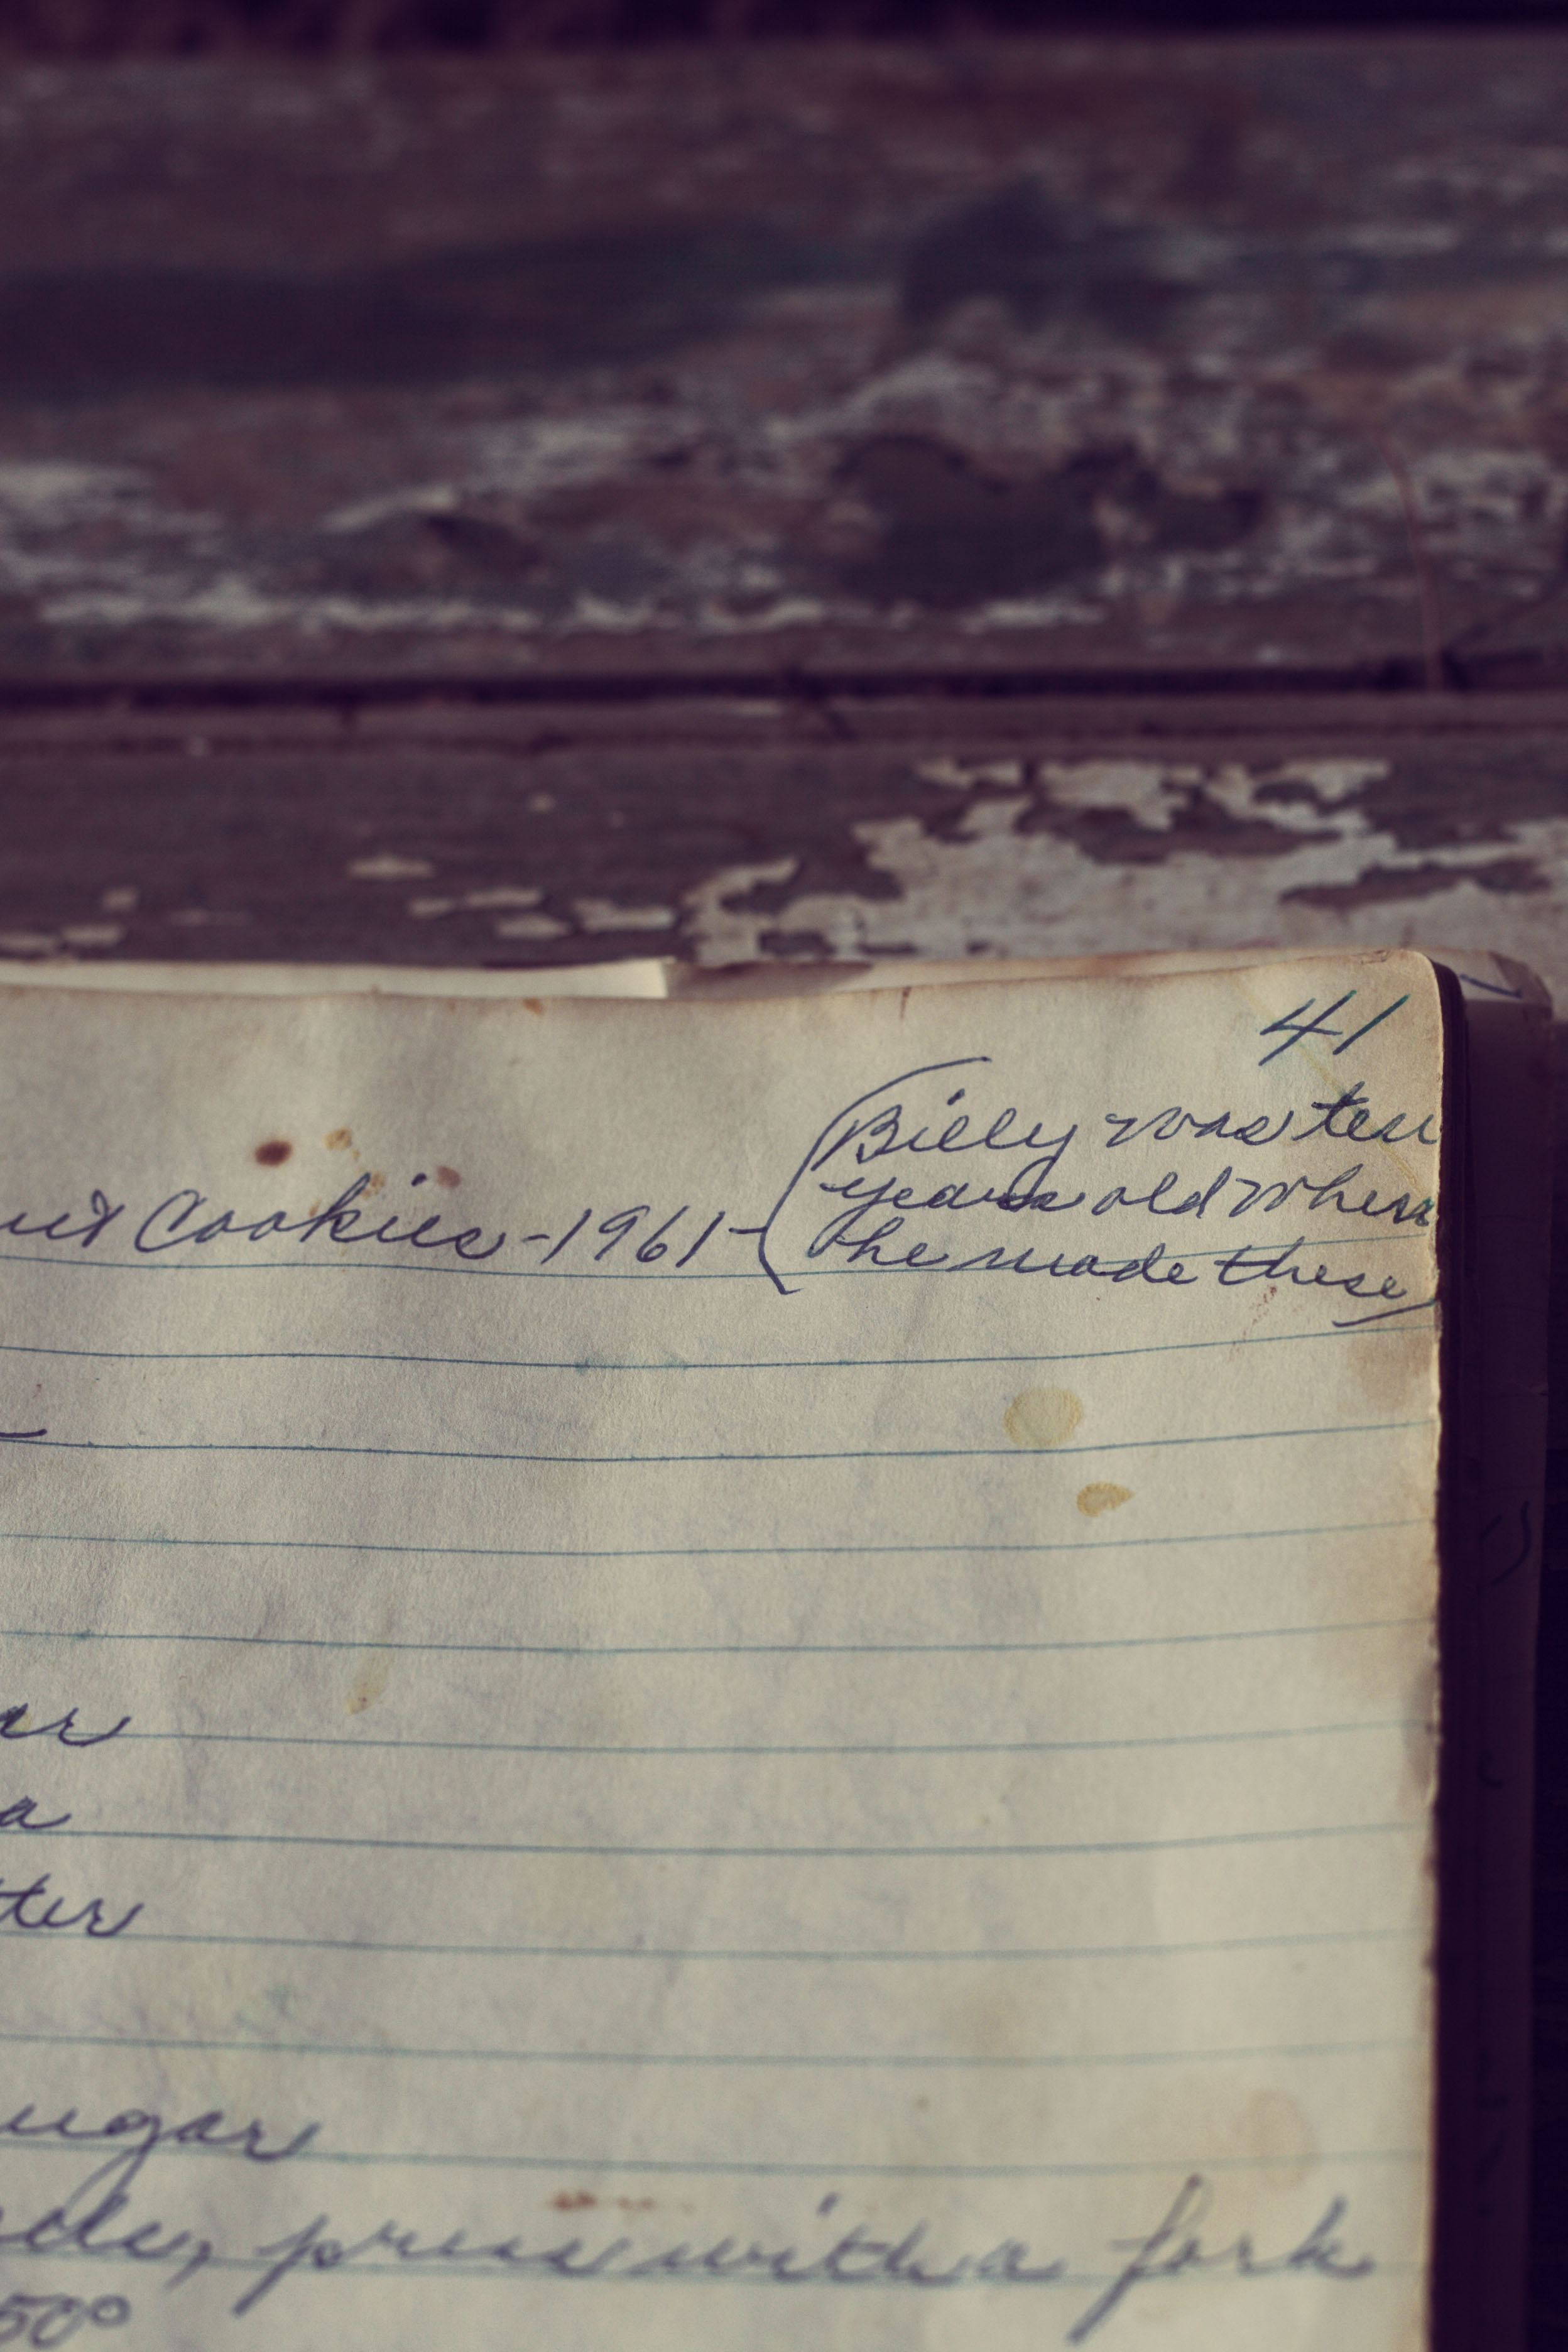 41
(Billy was ten
years old when
ut Cookies-1961- he made these)
er
a
tter
ugar
press with a fork
50°